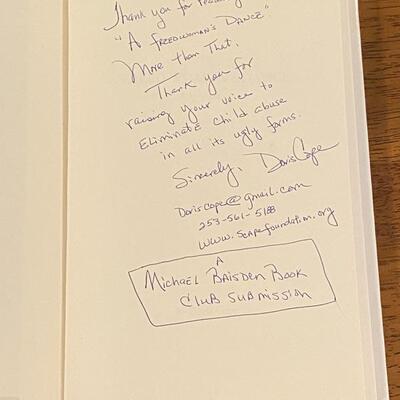 Thank you for reading
"A FREEDWOMAN'S DANCE."
More than That.
Thank you for
raising your voice to
ELIMINATE child abuse
in all its ugly forms.
Sincerely, Doris Cope
Doriscope@gmail.com
253-561-5188
www.scapefoundation.org
A
Michael Baisden Book
Club Submission